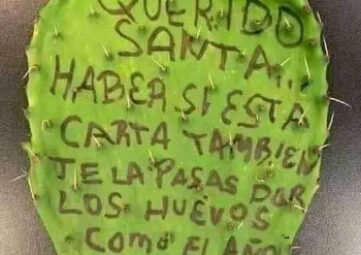 QUERIDO
SANTA...
HABER SI ESTA
CARTA TAMBIEN
TE LA PASAS POR
LOS HUEVOS
COMO EL AÑO